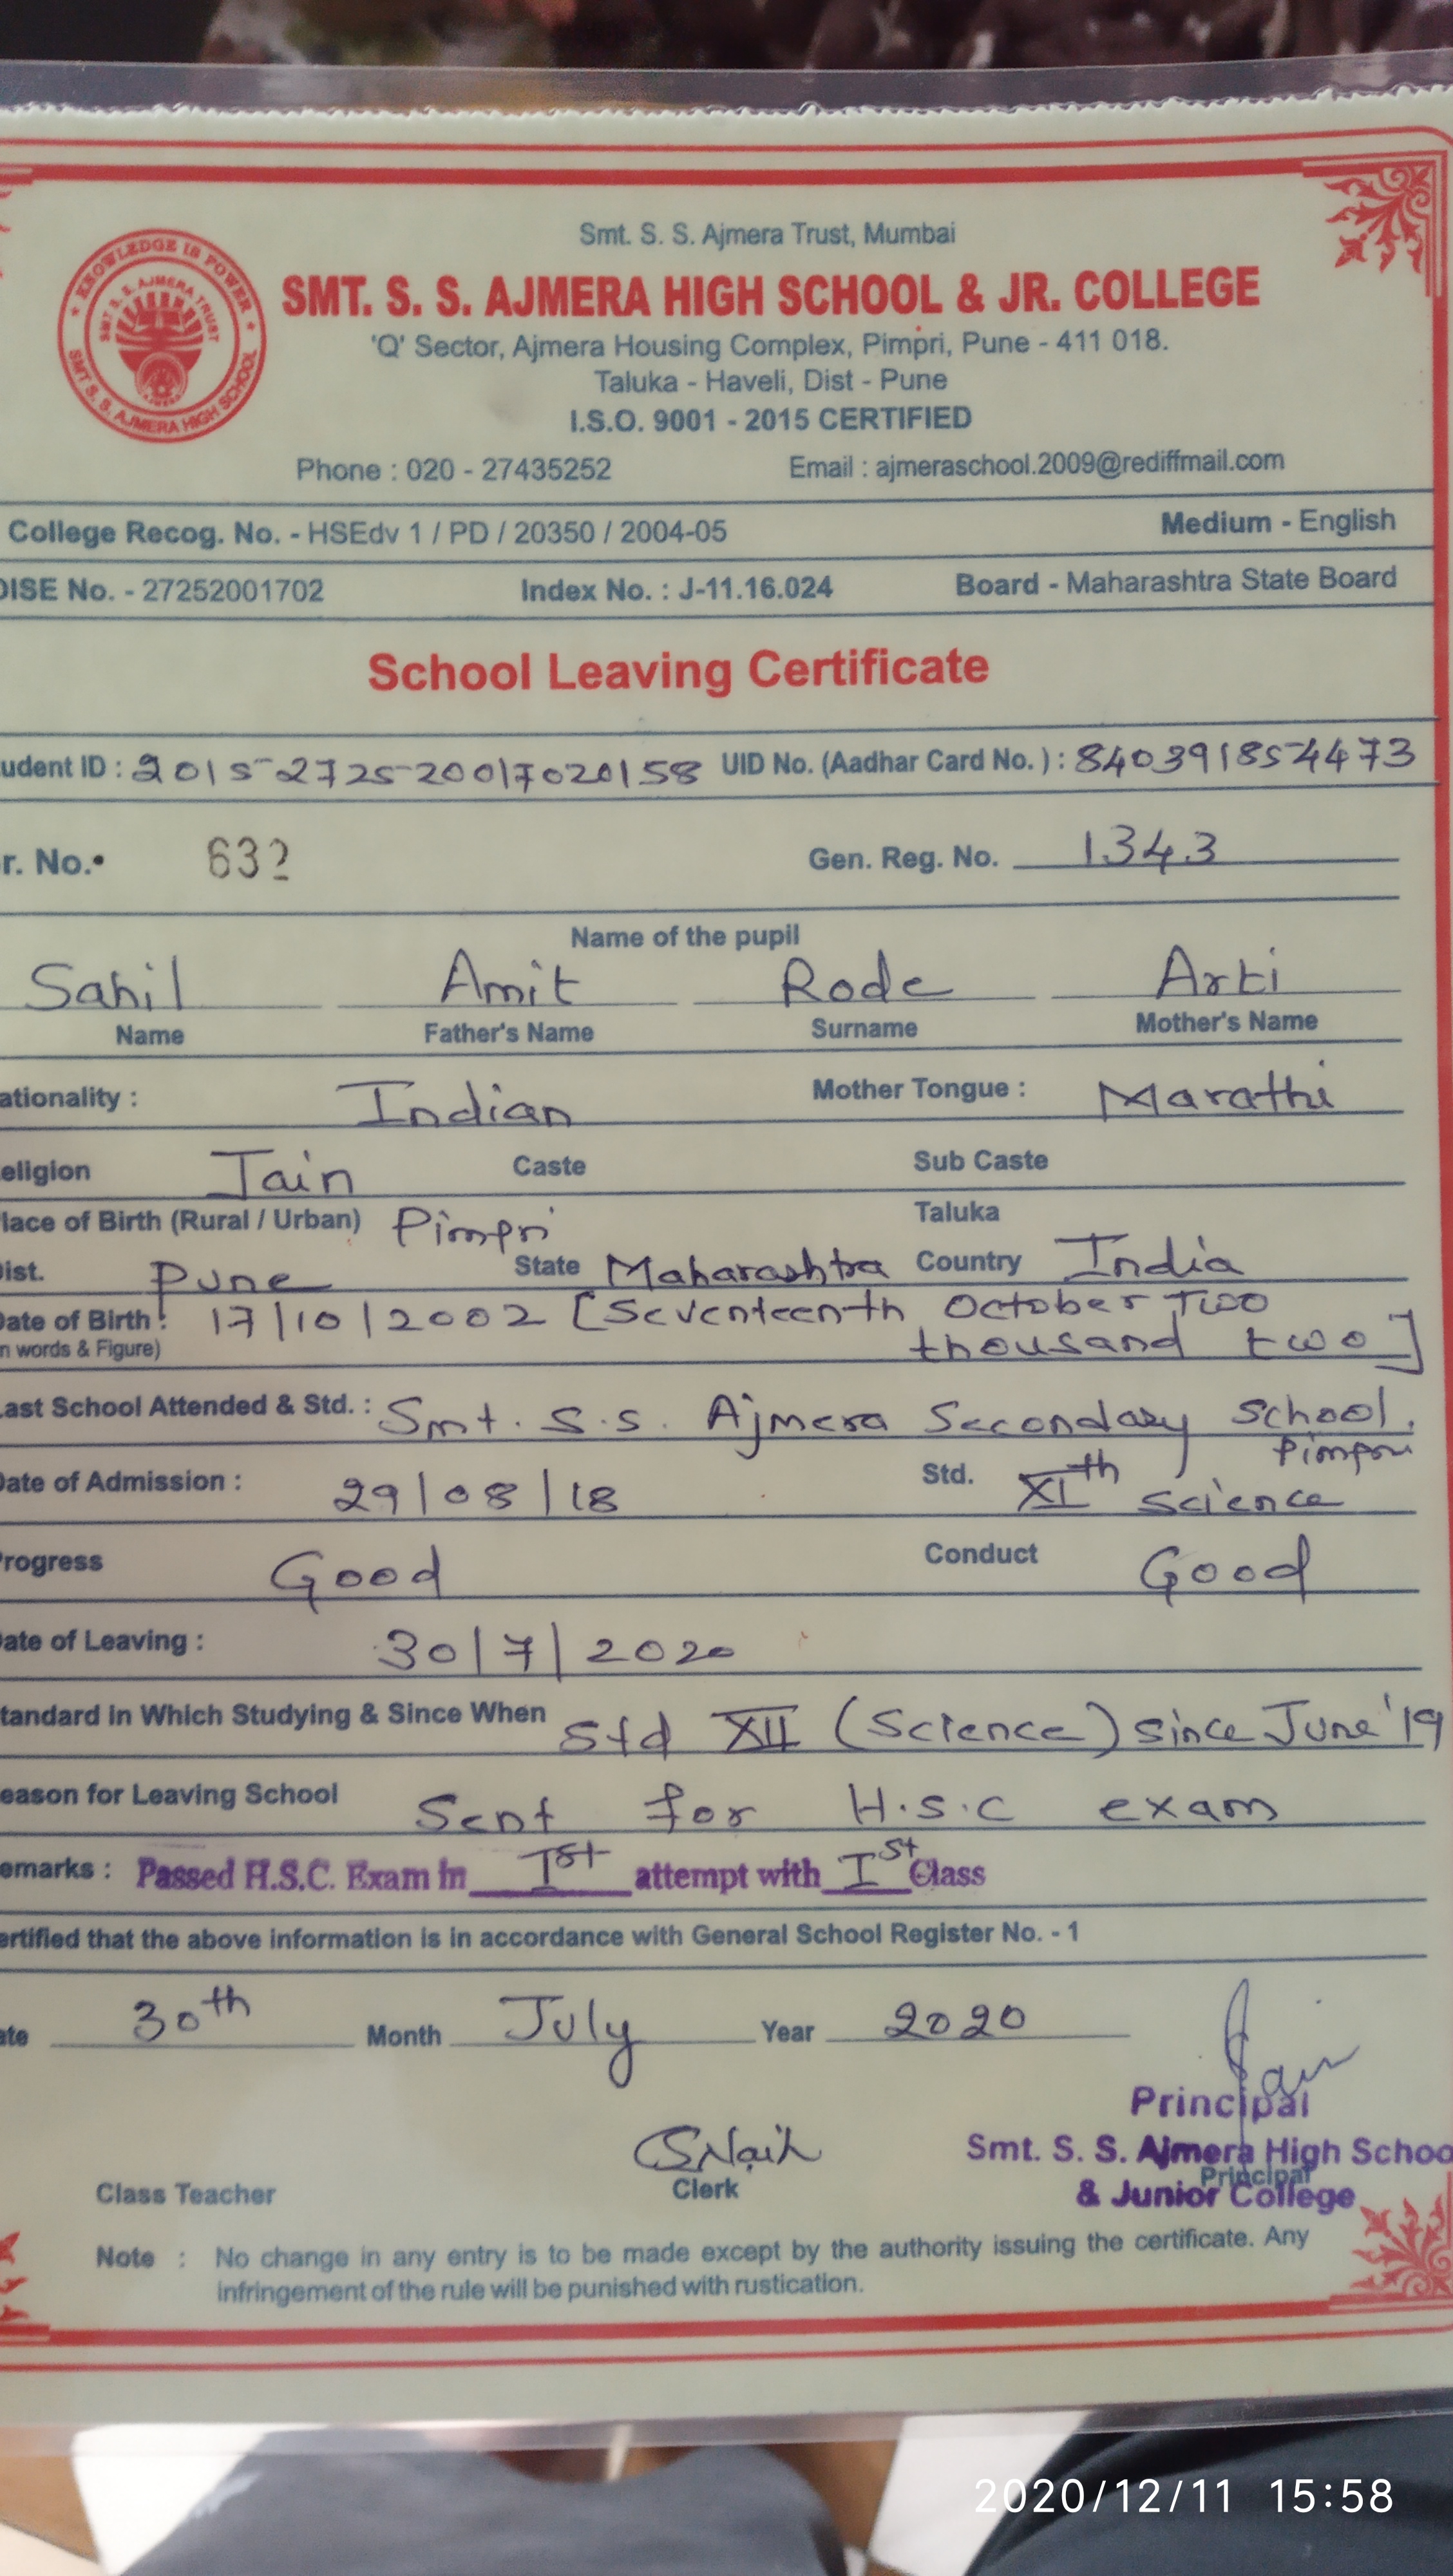 Smt. S. S. Ajmera Trust, Mumbai
★ KNOWLEDGE IS POWER ★
SMT. S. S. AJMERA TRUST
SMT. S. S. AJMERA HIGH SCHOOL
SMT. S. S. AJMERA HIGH SCHOOL & JR. COLLEGE
'Q' Sector, Ajmera Housing Complex, Pimpri, Pune - 411 018.
Taluka - Haveli, Dist - Pune
I.S.O. 9001 - 2015 CERTIFIED
Phone : 020 - 27435252 Email : ajmeraschool.2009@rediffmail.com
College Recog. No. - HSEdv 1 / PD / 20350 / 2004-05 Medium - English
DISE No. - 27252001702 Index No. : J-11.16.024 Board - Maharashtra State Board
School Leaving Certificate
udent ID : 2015-2725-20017020158 UID No. (Aadhar Card No. ) : 840391854473
r. No. 632 Gen. Reg. No. 1343
Name of the pupil
Sahil Amit Rode Arti
Name Father's Name Surname Mother's Name
ationality : Indian Mother Tongue : Marathi
eligion Jain Caste Sub Caste
lace of Birth (Rural / Urban) Pimpri Taluka
ist. Pune State Maharashtra Country India
Date of Birth : 17/10/2002 [Seventeenth October Two
n words & Figure) thousand two]
Last School Attended & Std. : Smt. S.S. Ajmera Secondary School,
Pimpri
Date of Admission : 29/08/18 Std. XIth Science
Progress Good Conduct Good
Date of Leaving : 30/7/2020
tandard in Which Studying & Since When Std XII (Science) since June '19
eason for Leaving School Sent for H.S.C exam
emarks : Passed H.S.C. Exam in Ist attempt with Ist Class
ertified that the above information is in accordance with General School Register No. - 1
ate 30th Month July Year 2020
Principal
SNaik Smt. S. S. Ajmera High Schoo
Principal
Class Teacher Clerk & Junior College
Note : No change in any entry is to be made except by the authority issuing the certificate. Any
infringement of the rule will be punished with rustication.
2020/12/11 15:58